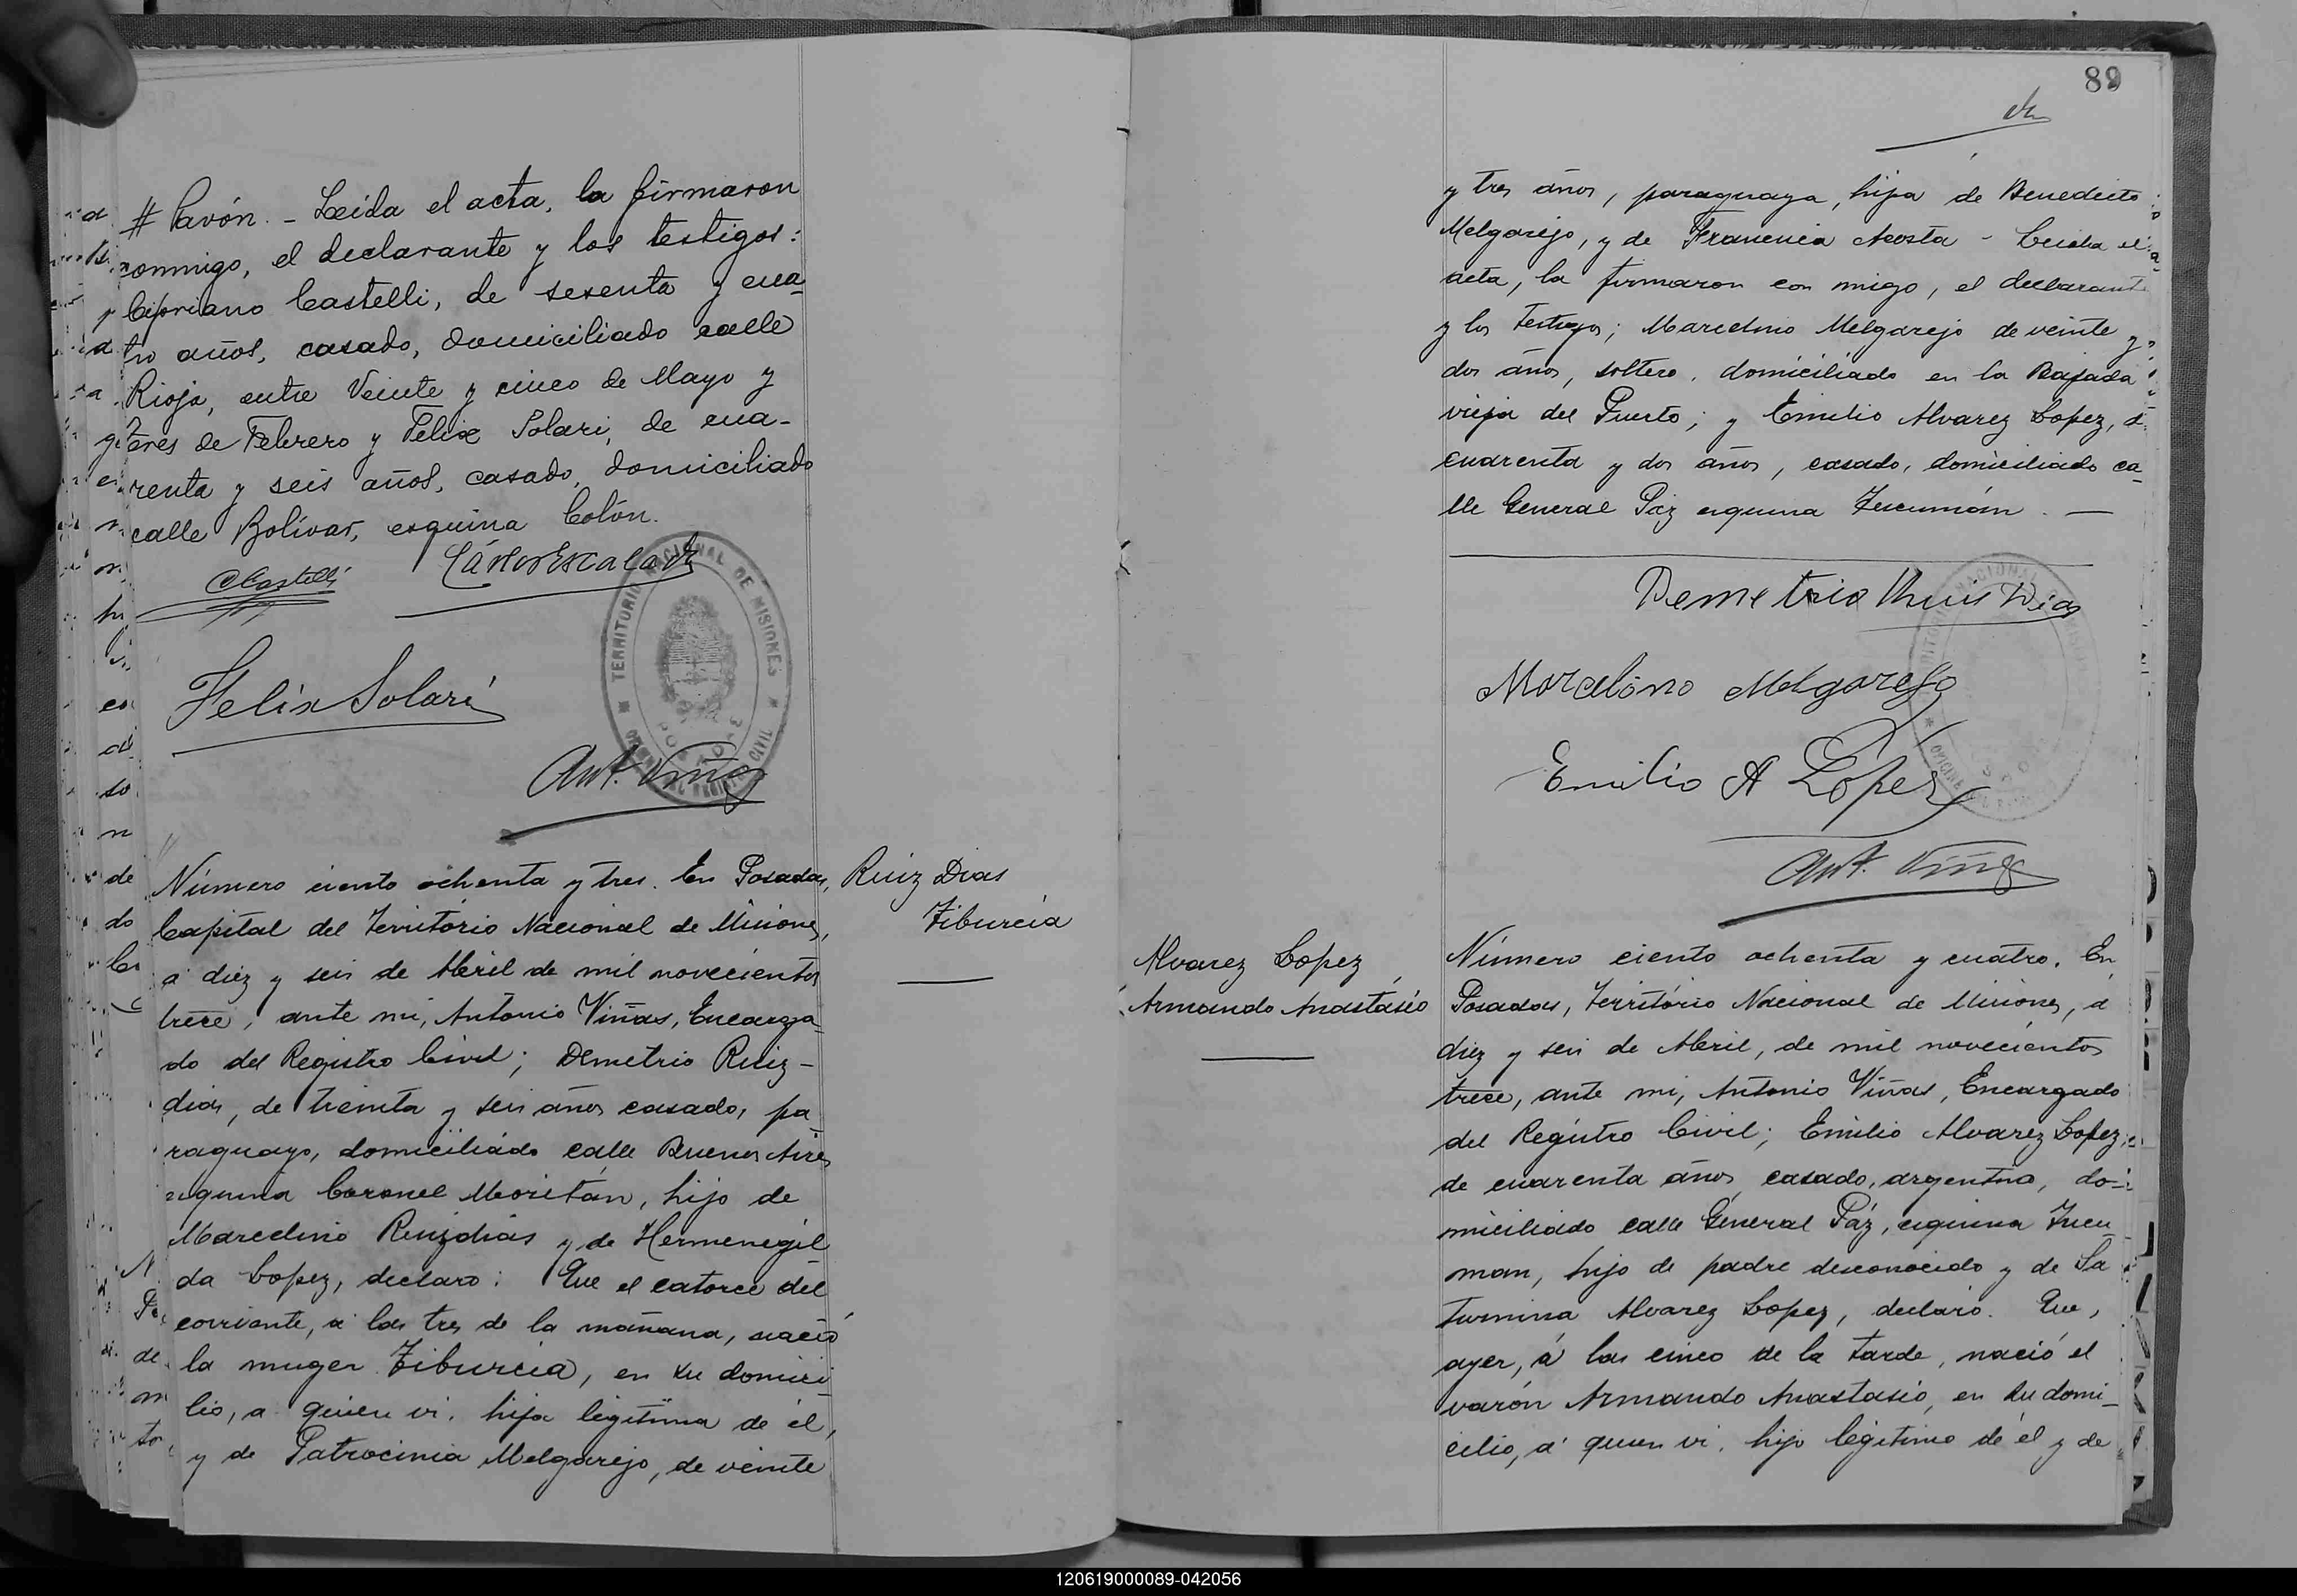 # Pavón. - Leída el acta, la firmaron
conmigo, el declarante y los testigos:
Cipriano Castelli, de sesenta y cua-
tro años, casado, domiciliado calle
Rioja, entre Veinte y cinco de Mayo y
tres de Febrero y Felix Solari, de cua-
renta y seis años, casado, domiciliado
calle Bolívar, esquina Colón.
CCastelli
Felix Solari
TERRITORIO NACIONAL DE MISIONES
POSADAS
Ant. Viñas
Ruiz Dias
Tiburcia
Número ciento ochenta y tres. En Posadas,
Capital del Territorio Nacional de Misiones,
a diez y seis de Abril de mil novecientos
trece, ante mi, Antonio Viñas, Encarga-
do del Registro Civil; Demetrio Ruiz-
dias, de treinta y seis años casado, pa-
raguayo, domiciliado calle Buenos Aires
esquina Coronel Moritán, hijo de
Marcelino Ruizdias y de Hermenegil
da Lopez, declaro: Que el catorce del
corriente, a las tres de la mañana, nació
la muger Tiburcia, en su domici-
lio, a quien vi, hija legitima de él,
y de Patrocinia Melgarejo, de veinte
89
y tres años, paraguaya, hija de Benedicto
Melgarejo, y de Francisca Acosta - Leida el
acta, la firmaron con migo, el declarante
y los testigos; Marcelino Melgarejo de veinte y
dos años, soltero, domiciliado en la Bajada
vieja del Puerto; y Emilio Alvarez Lopez, d
cuarenta y dos años, casado, domiciliado ca-
lle General Paz esquina Tucumán. —
Demetrio Ruis Dias
Marcelino Melgarejo
Emilio A Lopez
Ant. Viñas
Alvarez Lopez
Armando Anastásio
Número ciento ochenta y cuatro. En
Posadas, Território Nacional de Misiones, a
diez y seis de Abril, de mil novecientos
trece, ante mi, Antonio Viñas, Encargado
del Registro Civil; Emilio Alvarez Lopez,
de cuarenta años, casado, argentino, do-
miciliado calle General Páz, esquina Tucu
man, hijo de padre desconocido y de Sa
turnina Alvarez Lopez, declaro. Que,
ayer, á las cinco de la tarde, nació el
varón Armando Anastasio, en su domi-
cilio, a quien vi, hijo legitimo de él y de
120619000089-042056